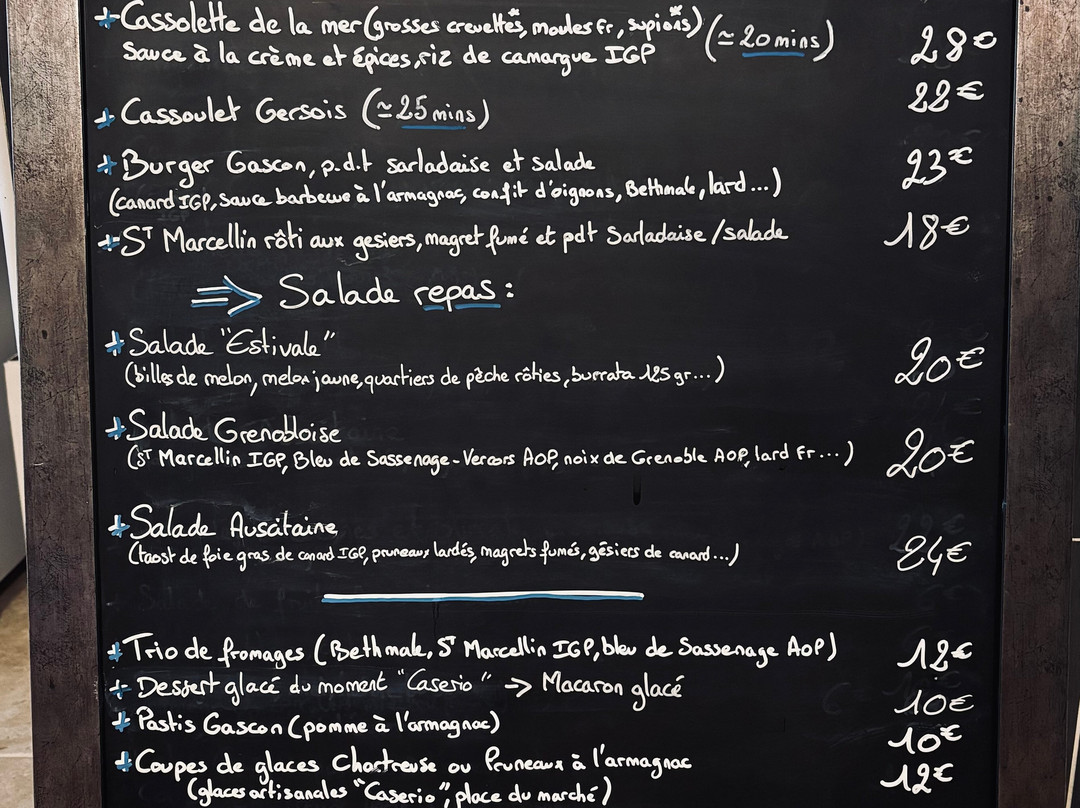 + Cassolette de la mer (grosses crevettes*, moules Fr, supions*) (≃ 20 mins) 28€
Sauce à la crème et épices, riz de camargue IGP
+ Cassoulet Gersois (≃ 25 mins) 22€
+ Burger Gascon, p.d.t sarladaise et salade 23€
(canard IGP, sauce barbecue à l'armagnac, confit d'oignons, Bethmale, lard ...)
+ ST Marcellin rôti aux gesiers, magret fumé et pdt Sarladaise / salade 18€
⇒ Salade repas :
+ Salade "Estivale" 20€
(billes de melon, melon jaune, quartiers de pèche rôties, burrata 125 gr...)
+ Salade Grenobloise 20€
(ST Marcellin IGP, Bleu de Sassenage-Vercors AOP, noix de Grenoble AOP, lard Fr...)
+ Salade Auscitaine 24€
(taost de foie gras de canard IGP, pruneaux lardés, magrets fumés, gésiers de canard...)
+ Trio de fromages (Bethmale, ST Marcellin IGP, bleu de Sassenage AOP) 12€
+ Dessert glacé du moment "Caserio" → Macaron glacé 10€
+ Pastis Gascon (pomme à l'armagnac) 10€
+ Coupes de glaces Chartreuse ou Pruneaux à l'armagnac 12€
(glaces artisanales "Caserio", place du marché)